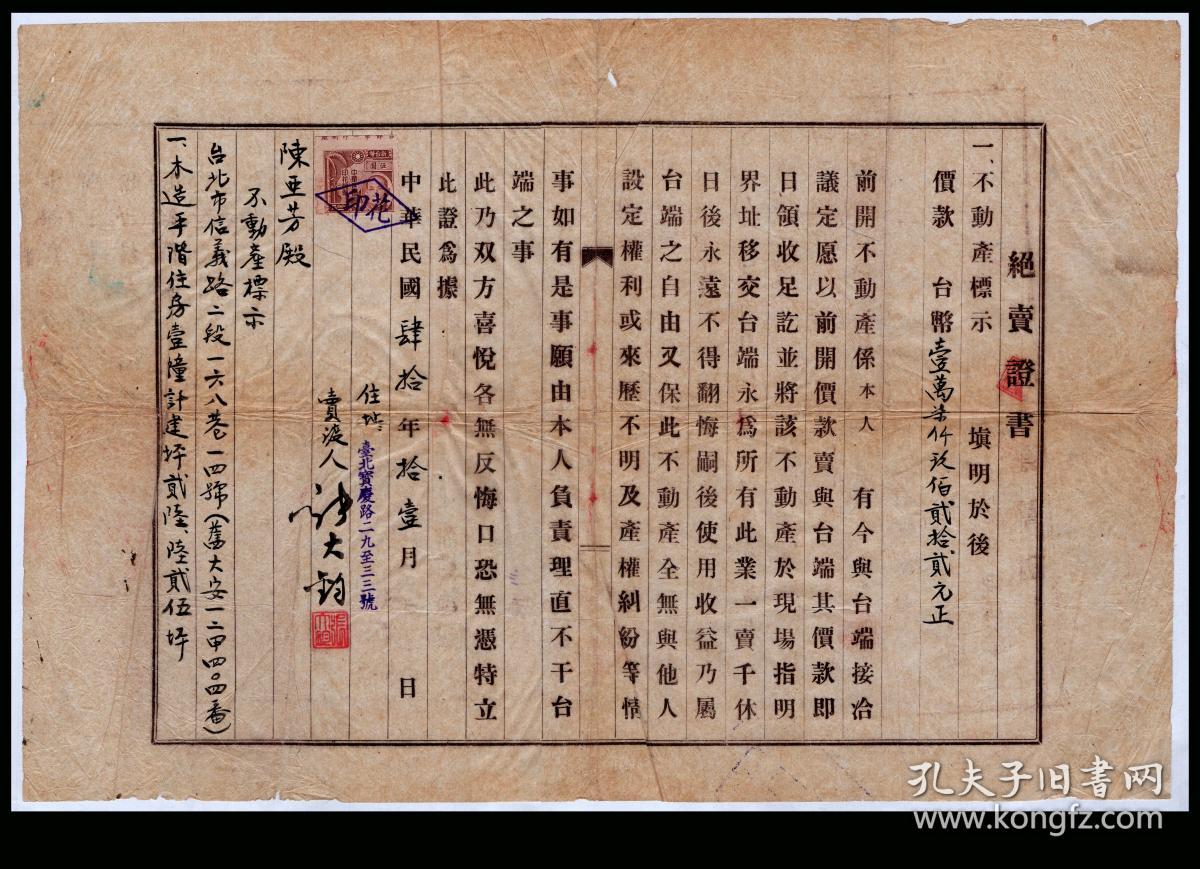 絕賣證書
一、不動產標示　填明於後
價款　台幣壹萬柒仟玖佰貳拾貳元正
前開不動產係本人　有今與台端接洽
議定愿以前開價款賣與台端其價款即
日領收足訖並將該不動產於現場指明
界址移交台端永為所有此業一賣千休
日後永遠不得翻悔嗣後使用收益乃屬
台端之自由又保此不動產全無與他人
設定權利或來歷不明及產權糾紛等情
事如有是事願由本人負責理直不干台
端之事
此乃双方喜悅各無反悔口恐無憑特立
此證為據
中華民國肆拾年拾壹月　日
住址：臺北寶慶路二九至三三號
賣渡人 張大鈞
印花
陳亜芳殿
不動產標示
台北市信義路二段一六八巷一四號(舊大安一二甲四〇四番)
一、木造平階住房壹幢計建坪貳陸、陸貳伍坪
孔夫子旧书网
www.kongfz.com